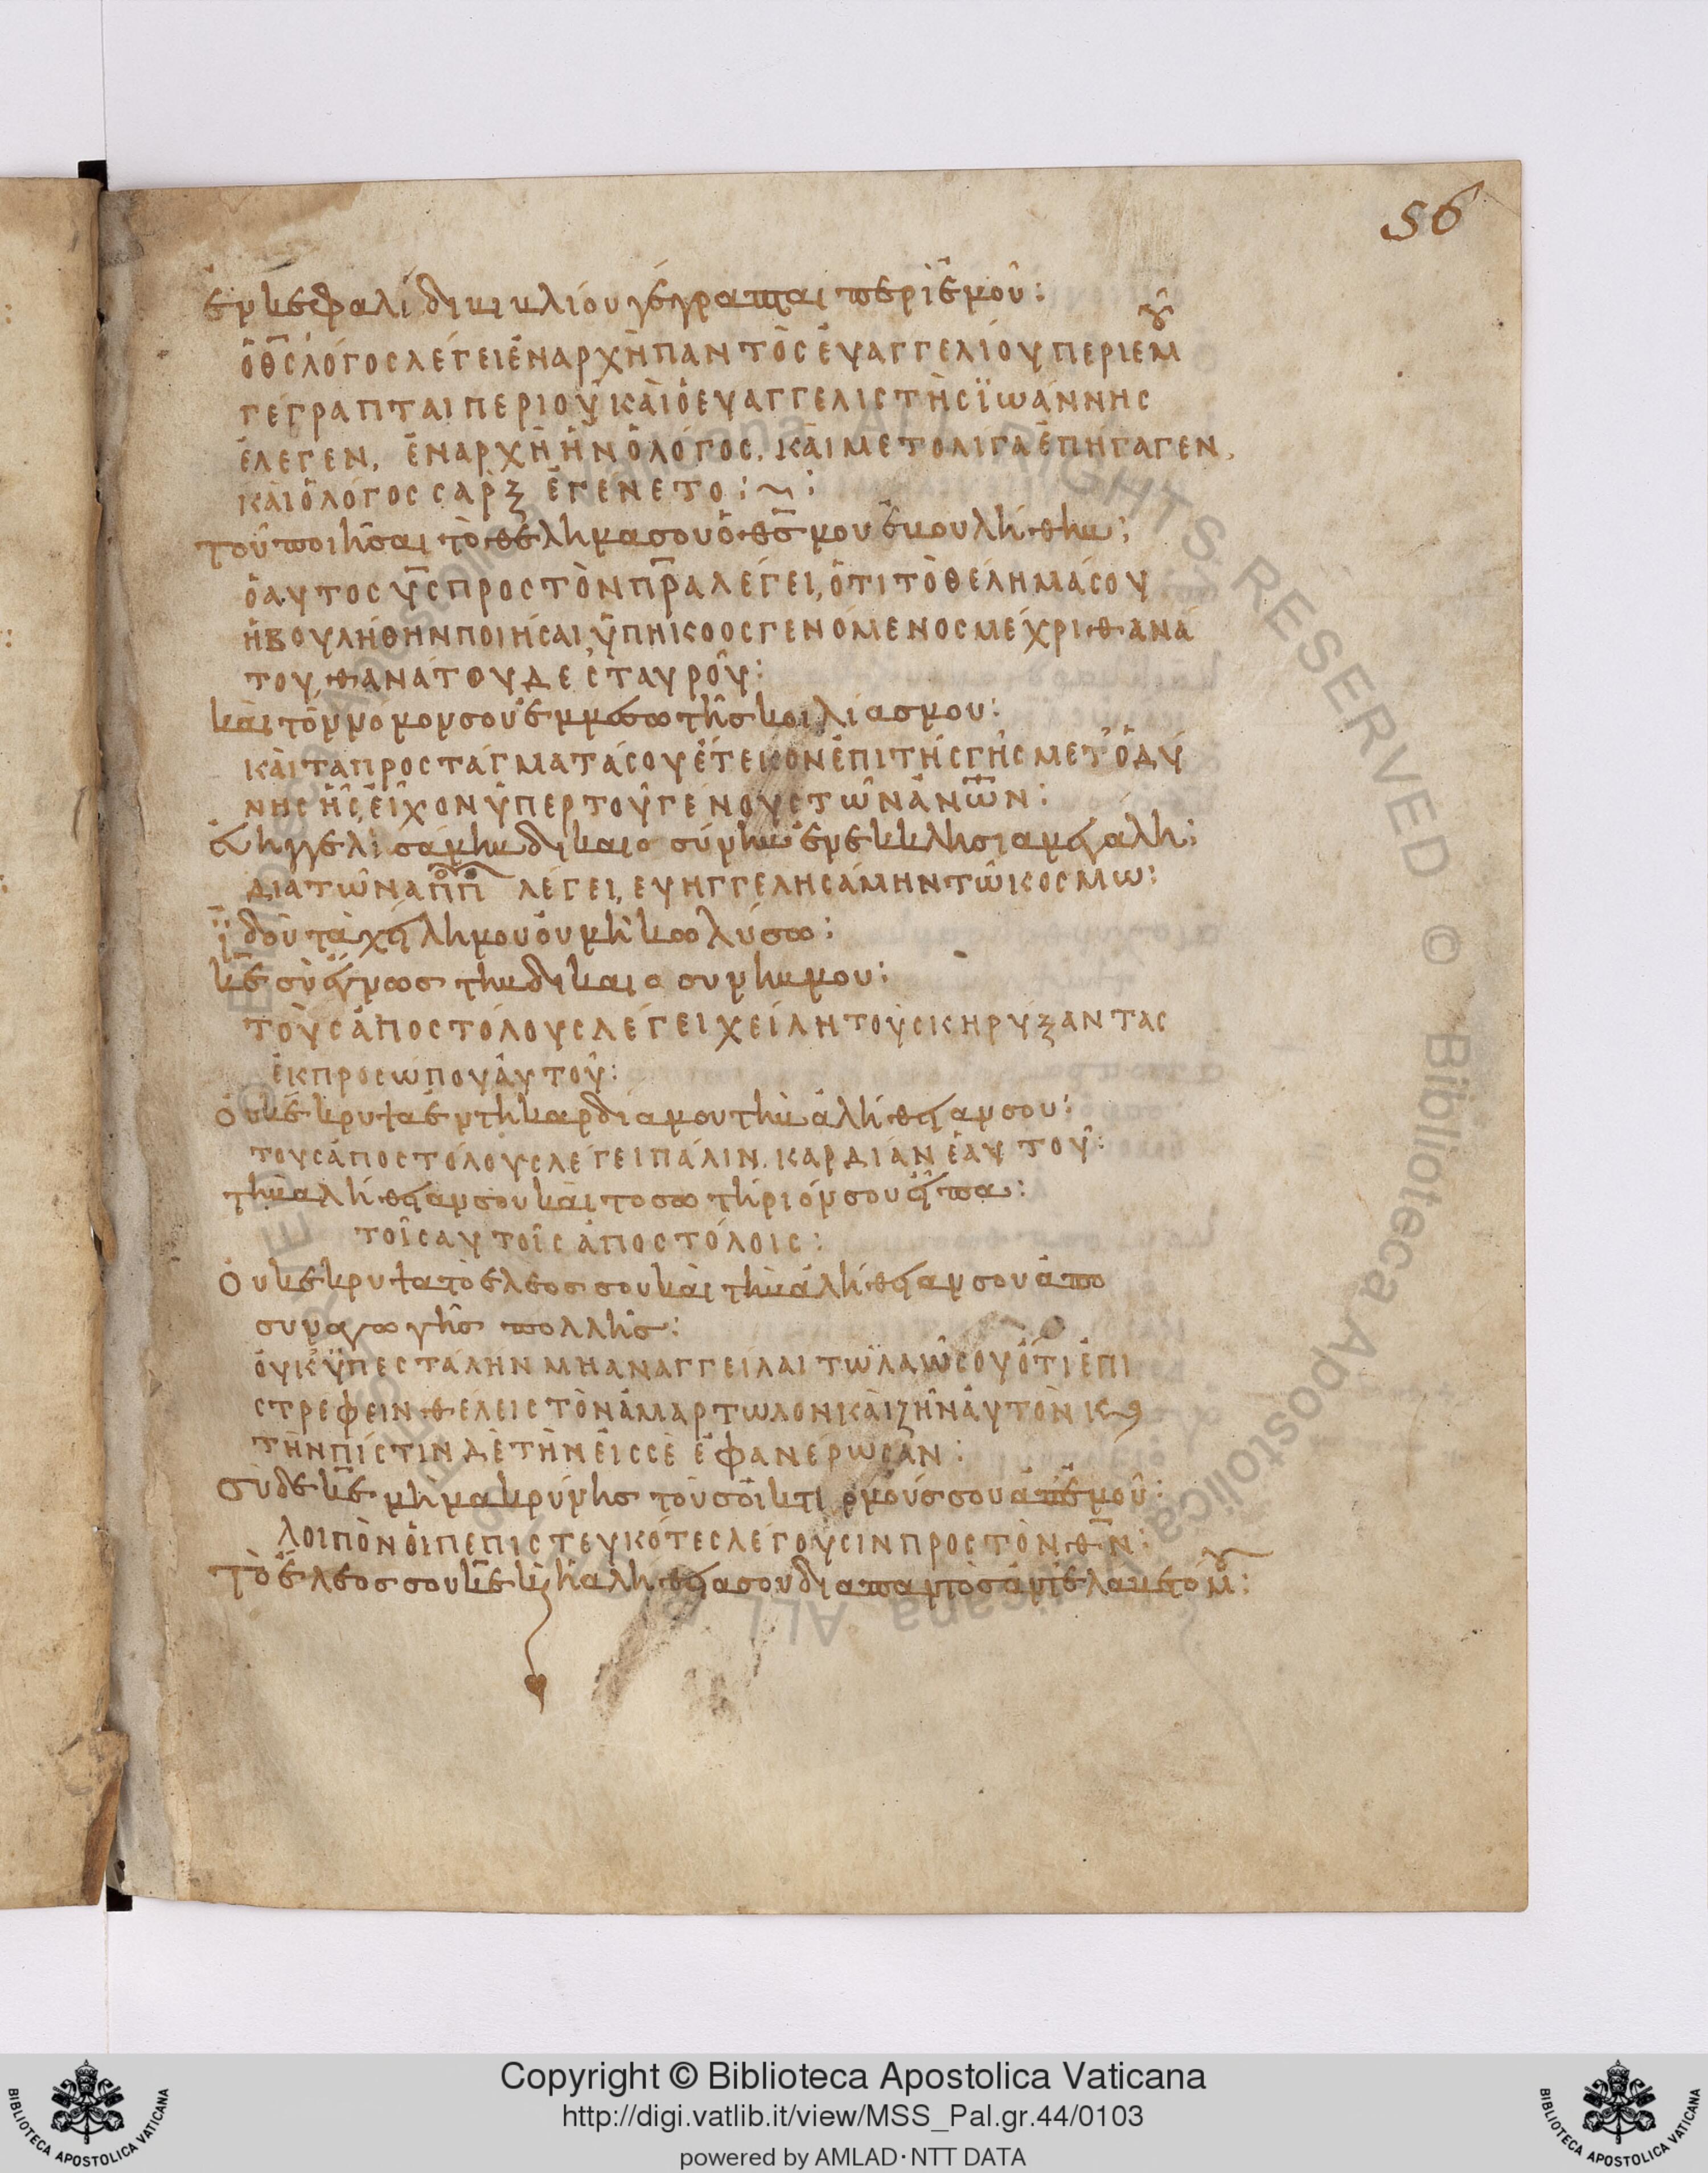 56
ἐν κεφαλίδι κικλίου γέγραπται περὶ ἐμοῦ:
ὁ θ̅ς̅ λόγος λέγει ἐν ἀρχῇ παντὸς ἐυαγγελίου περι εμοῦ
γέγραπται περι οὗ καὶ ὁ ευαγγελιστὴς ϊωάννης
ἔλεγεν, ἐν ἀρχῇ ἦν ὁ λόγος. καὶ μετ ολίγα ἐπήγαγεν,
καὶ ὁ λόγος σαρξ ἐγένετο:~:
τοῦ ποιῆσαι τὸ θέλημα σου ὁ θ̅ς̅ μου ἐκουλήθην:
ὁ αυτος υ̅ς̅ προς τὸν π̅ρ̅α λέγει, ὅτι τὸ θέλημά σου
ἠβουλήθην ποιῆσαι, ὑπήκοος γενόμενος μέχρι θανά
του, θανάτου δε σταυροῦ:
καὶ τὸν νομον σου ἐν μέσω τῆς κοιλίας μου:
καὶ τὰ προστάγματά σου ἔτεκον ἐπι τῆς γῆς μετ' ὀδύ
νης ἧς εἶχον ὑπερ τοῦ γένους τῶν ἀν̅ω̅ν:
ἐυηγγελισάμην δικαιοσύνην ἐν εκκλησια μεγάλη:
δια τῶν αποπ λέγει, ευηγγελησάμην τῶ κοσμω:
ϊδοὺ τὰ χείλη μου ὀυ μὴ κωλύσω:
κ̅ε̅ σὺ ἔγνως την δικαιοσυνην μου:
τοὺς ἀποστόλους λέγει χείλη τοὺς κηρύξαντας
ἐκ προσώπου ἀυτοῦ:
ὀυκ ἔκρυψα ἐν τῆ καρδία μου τὴν ἀλήθειαν σου:
τους ἀποστόλους λέγει πάλιν. καρδίαν ἑαυτοῦ:
τὴν αλήθειαν σου καὶ το σωτήριόν σου εἶπα:
τοῖς αυτοῖς ἀποστόλοις:
ὀυκ εκρυψα τὸ ελεος σου καὶ τὴν ἀλήθειαν σου ἀπο
συναγωγῆς πολλῆς:
ὀυκ ϋπεστάλην μη αναγγειλαι τω λαῶ σου ὅτι ἐπι
στρεφειν θέλεις τὸν ἁμαρτωλον καὶ ζῆν ἀυτὸν κ̀
τὴν πίστιν δὲ τὴν ἐις σὲ ἐφανέρωσαν:
σὺ δε κ̅ε̅ μὴ μακρύνης τοὺς ὀικτιρμούς σου ἀπ' ἐμοῦ:
λοιπὸν ὁι πεπιστευκότες λέγουσιν προς τὸν θ̅ν̅:
τὸ ἔλεος σου κ̅ε̅ κ̀ ἡ αλήθεια σου δια παντὸς ἀντελάκετό μου:
Copyright © Biblioteca Apostolica Vaticana
http://digi.vatlib.it/view/MSS_Pal.gr.44/0103
powered by AMLAD·NTT DATA
BIBLIOTECA APOSTOLICA VATICANA
BIBLIOTECA APOSTOLICA VATICANA